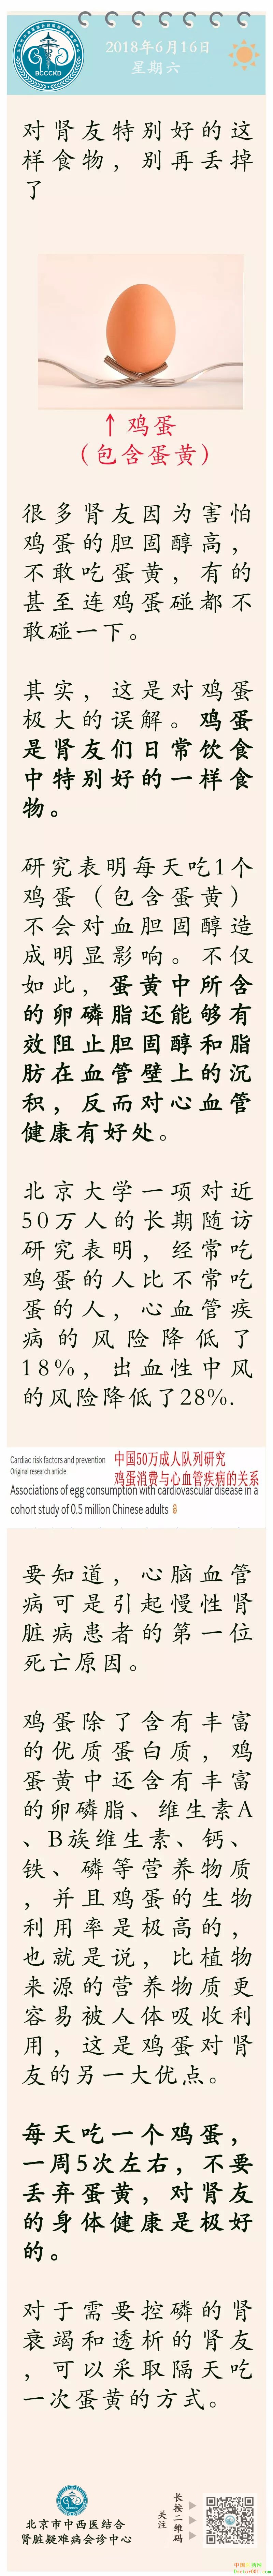 2018年6月16日
星期六
BCCCKD
对肾友特别好的这
样食物，别再丢掉
了
↑鸡蛋
（包含蛋黄）
很多肾友因为害怕
鸡蛋的胆固醇高，
不敢吃蛋黄，有的
甚至连鸡蛋碰都不
敢碰一下。
其实，这是对鸡蛋
极大的误解。鸡蛋
是肾友们日常饮食
中特别好的一样食
物。
研究表明每天吃1个
鸡蛋（包含蛋黄）
不会对血胆固醇造
成明显影响。不仅
如此，蛋黄中所含
的卵磷脂还能够有
效阻止胆固醇和脂
肪在血管壁上的沉
积，反而对心血管
健康有好处。
北京大学一项对近
50万人的长期随访
研究表明，经常吃
鸡蛋的人比不常吃
蛋的人，心血管疾
病的风险降低了
18%，出血性中风
的风险降低了28%.
Cardiac risk factors and prevention
Original research article
中国50万成人队列研究
鸡蛋消费与心血管疾病的关系
Associations of egg consumption with cardiovascular disease in a
cohort study of 0.5 million Chinese adults
要知道，心脑血管
病可是引起慢性肾
脏病患者的第一位
死亡原因。
鸡蛋除了含有丰富
的优质蛋白质，鸡
蛋黄中还含有丰富
的卵磷脂、维生素A
、B族维生素、钙、
铁、磷等营养物质
，并且鸡蛋的生物
利用率是极高的，
也就是说，比植物
来源的营养物质更
容易被人体吸收利
用，这是鸡蛋对肾
友的另一大优点。
每天吃一个鸡蛋，
一周5次左右，不要
丢弃蛋黄，对肾友
的身体健康是极好
的。
对于需要控磷的肾
衰竭和透析的肾友
，可以采取隔天吃
一次蛋黄的方式。
北京市中西医结合
肾脏疑难病会诊中心
长按二维码
关注